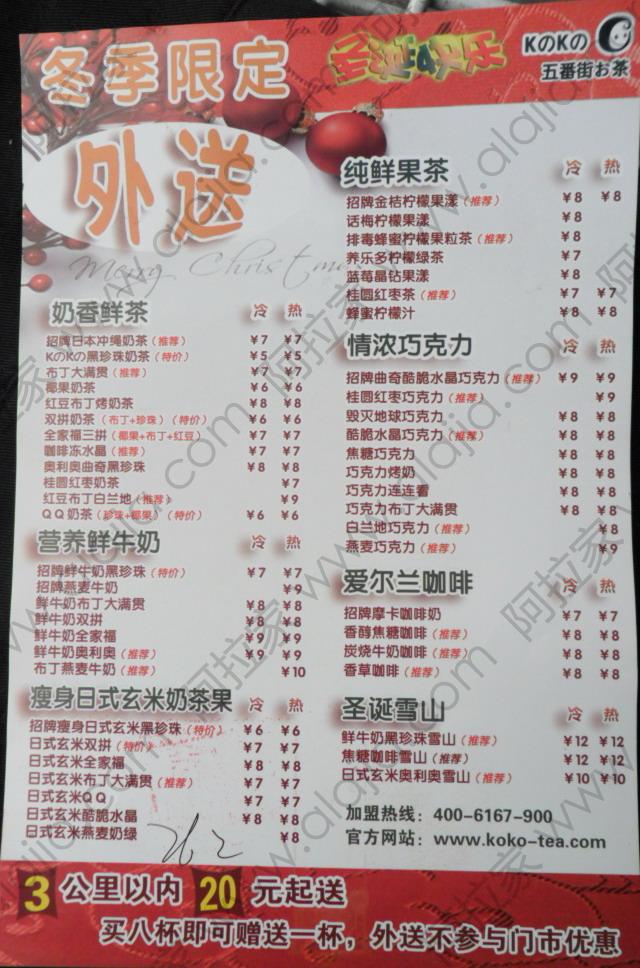 冬季限定
圣诞快乐
KのKの
五番街お茶
外送
Merry Christmas
奶香鲜茶 冷 热
招牌日本冲绳奶茶(推荐) ¥7 ¥7
KのKの黑珍珠奶茶(特价) ¥5 ¥5
布丁大满贯(推荐) ¥7 ¥7
椰果奶茶 ¥6 ¥6
红豆布丁烤奶茶 ¥8 ¥8
双拼奶茶(布丁+珍珠)(特价) ¥6 ¥6
全家福三拼(椰果+布丁+红豆) ¥7 ¥7
咖啡冻水晶(推荐) ¥7 ¥7
奥利奥曲奇黑珍珠 ¥8 ¥8
桂圆红枣奶茶 ¥7
红豆布丁白兰地(推荐) ¥9
QQ奶茶(珍珠+椰果)(特价) ¥6 ¥6
营养鲜牛奶 冷 热
招牌鲜牛奶黑珍珠(特价) ¥7 ¥7
招牌燕麦牛奶 ¥9
鲜牛奶布丁大满贯 ¥8 ¥8
鲜牛奶双拼 ¥8 ¥8
鲜牛奶全家福 ¥9 ¥9
鲜牛奶奥利奥(推荐) ¥9 ¥9
布丁燕麦牛奶(推荐) ¥10
瘦身日式玄米奶茶果 冷 热
招牌瘦身日式玄米黑珍珠(特价) ¥6 ¥6
日式玄米双拼(特价) ¥7 ¥7
日式玄米全家福 ¥8 ¥8
日式玄米布丁大满贯(推荐) ¥7 ¥7
日式玄米QQ ¥7 ¥7
日式玄米酷脆水晶 ¥8 ¥8
日式玄米燕麦奶绿 ¥8
纯鲜果茶 冷 热
招牌金桔柠檬果漾(推荐) ¥8 ¥8
话梅柠檬果漾 ¥8
排毒蜂蜜柠檬果粒茶(推荐) ¥8
养乐多柠檬绿茶 ¥7
蓝莓晶钻果漾 ¥8
桂圆红枣茶(推荐) ¥7 ¥7
蜂蜜柠檬汁 ¥8 ¥8
情浓巧克力 冷 热
招牌曲奇酷脆水晶巧克力(推荐) ¥9 ¥9
桂圆红枣巧克力(推荐) ¥9
毁灭地球巧克力 ¥8 ¥8
酷脆水晶巧克力(推荐) ¥8 ¥8
焦糖巧克力 ¥8 ¥8
巧克力烤奶 ¥8 ¥8
巧克力连连看 ¥8 ¥8
巧克力布丁大满贯 ¥8 ¥8
白兰地巧克力(推荐) ¥8
燕麦巧克力(推荐) ¥9
爱尔兰咖啡 冷 热
招牌摩卡咖啡奶 ¥7 ¥7
香醇焦糖咖啡(推荐) ¥8 ¥8
炭烧牛奶咖啡(推荐) ¥8 ¥8
香草咖啡(推荐) ¥8 ¥8
圣诞雪山 冷 热
鲜牛奶黑珍珠雪山(推荐) ¥12 ¥12
焦糖咖啡雪山(推荐) ¥12 ¥12
日式玄米奥利奥雪山(推荐) ¥10 ¥10
加盟热线：400-6167-900
官方网站：www.koko-tea.com
3公里以内20元起送
买八杯即可赠送一杯，外送不参与门市优惠
阿拉家 www.alajia.com